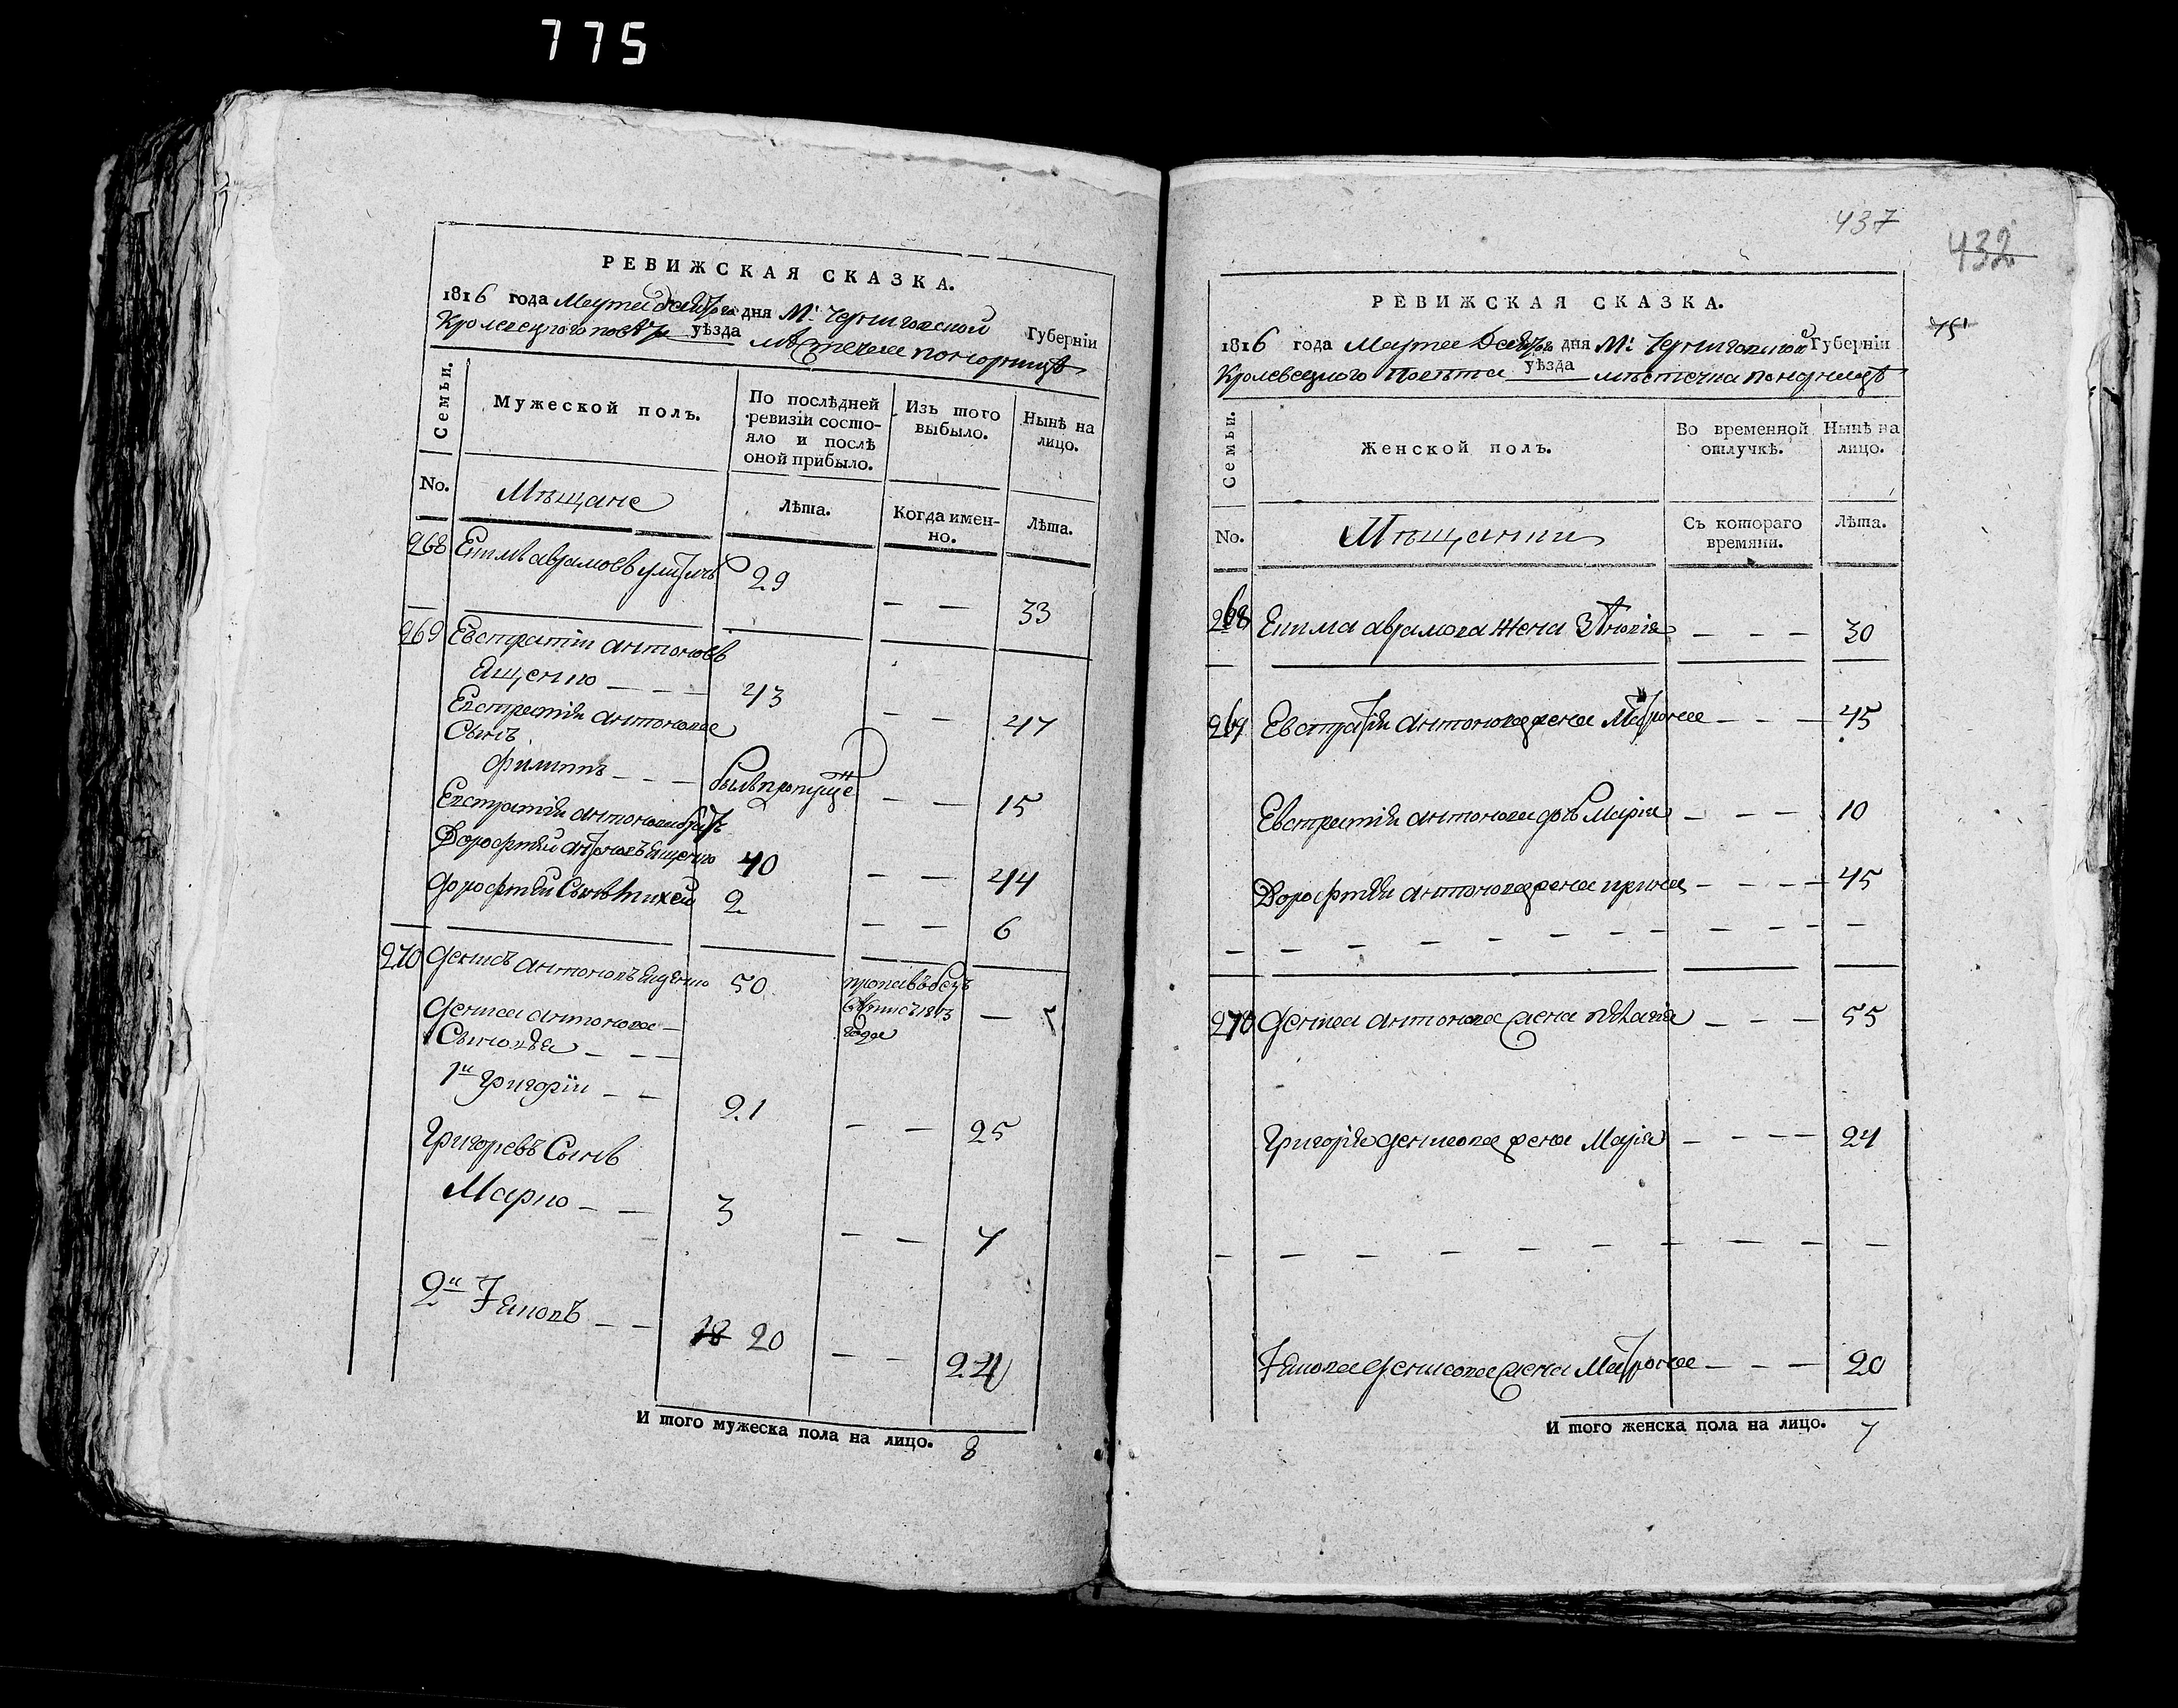 775
РЕВИЖСКАЯ СКАЗКА.
1816 года Марта дня М: Черниговской Губерніи
Кролевецкого повѣта уѣзда мѣстечка понорницѣ
Семьи.
Мужеской полъ.
По послѣдней ревизіи состо-
яло и послѣ
оной прибыло.
Изъ того
выбыло.
Нынѣ на
лицо.
No.
Мѣщане
Лѣта.
Когда имен-
но.
Лѣта.
268 Екимъ аврамовъ 29 — — 33
269 Евстратіи антоновъ
Ященко — — — 43 — — 47
Евстратія антонова
Сынъ
филиппъ — — — былъ пропущен — — 15
Евстратія антонова братъ
Дорофтей антоновъ ященко 40 — — 44
дорофтея Сынъ михей 2 — — 6
270 денисъ антоновъ ященко 50 пропавъ безъ
вѣсти съ 1813
года —
дениса антонова —
Сыновья — — —
1й григоріи — — 21 — — 25
григоревъ Сынъ
Марко — — 3 — — 7
2й Яковъ — — 18 20 — — 24
И того мужеска пола на лицо. 8
437
432
751
РЕВИЖСКАЯ СКАЗКА.
1816 года Марта дня М: Черниговской Губерніи
Кролевецкого Повѣта уѣзда мѣстечка понорницѣ
Семьи.
Женской полъ.
Во временной
отлучкѣ.
Нынѣ на
лицо.
No.
Мѣщанки
Съ котораго
времяни.
Лѣта.
268 Екима аврамова жена — — — 30
269 Евстратія антонова жена Матрона — — — 45
Евстратія антонова дчь Марія — — — 10
Дорофтея антонова жена ирина — — — 45
270 дениса антонова жена пелагія — — — 55
григорія денисова жена Марія — — — — 24
Якова денисова жена Матрона — — — 20
И того женска пола на лицо. 7